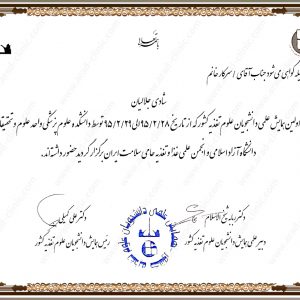 باسمه تعالی
یله گواهی می شود جناب آقای / سرکار خانم
شادی جلالیان
اولین همایش علمی دانشجویان علوم تغذیه کشور که از تاریخ ۹۵/۲/۲۸ الی ۹۵/۲/۲۹ توسط دانشکده علوم پزشکی واحد علوم و تحقیقا
دانشگاه آزاد اسلامی و انجمن علمی غذا و تغذیه حامی سلامت ایران برگزار گردید حضور داشته‌اند.
دکتر ربابه شیخ الاسلام
دکتر علی کیلی
دبیر علمی همایش دانشجویان علوم تغذیه کشور
رئیس همایش دانشجویان علوم تغذیه کشور